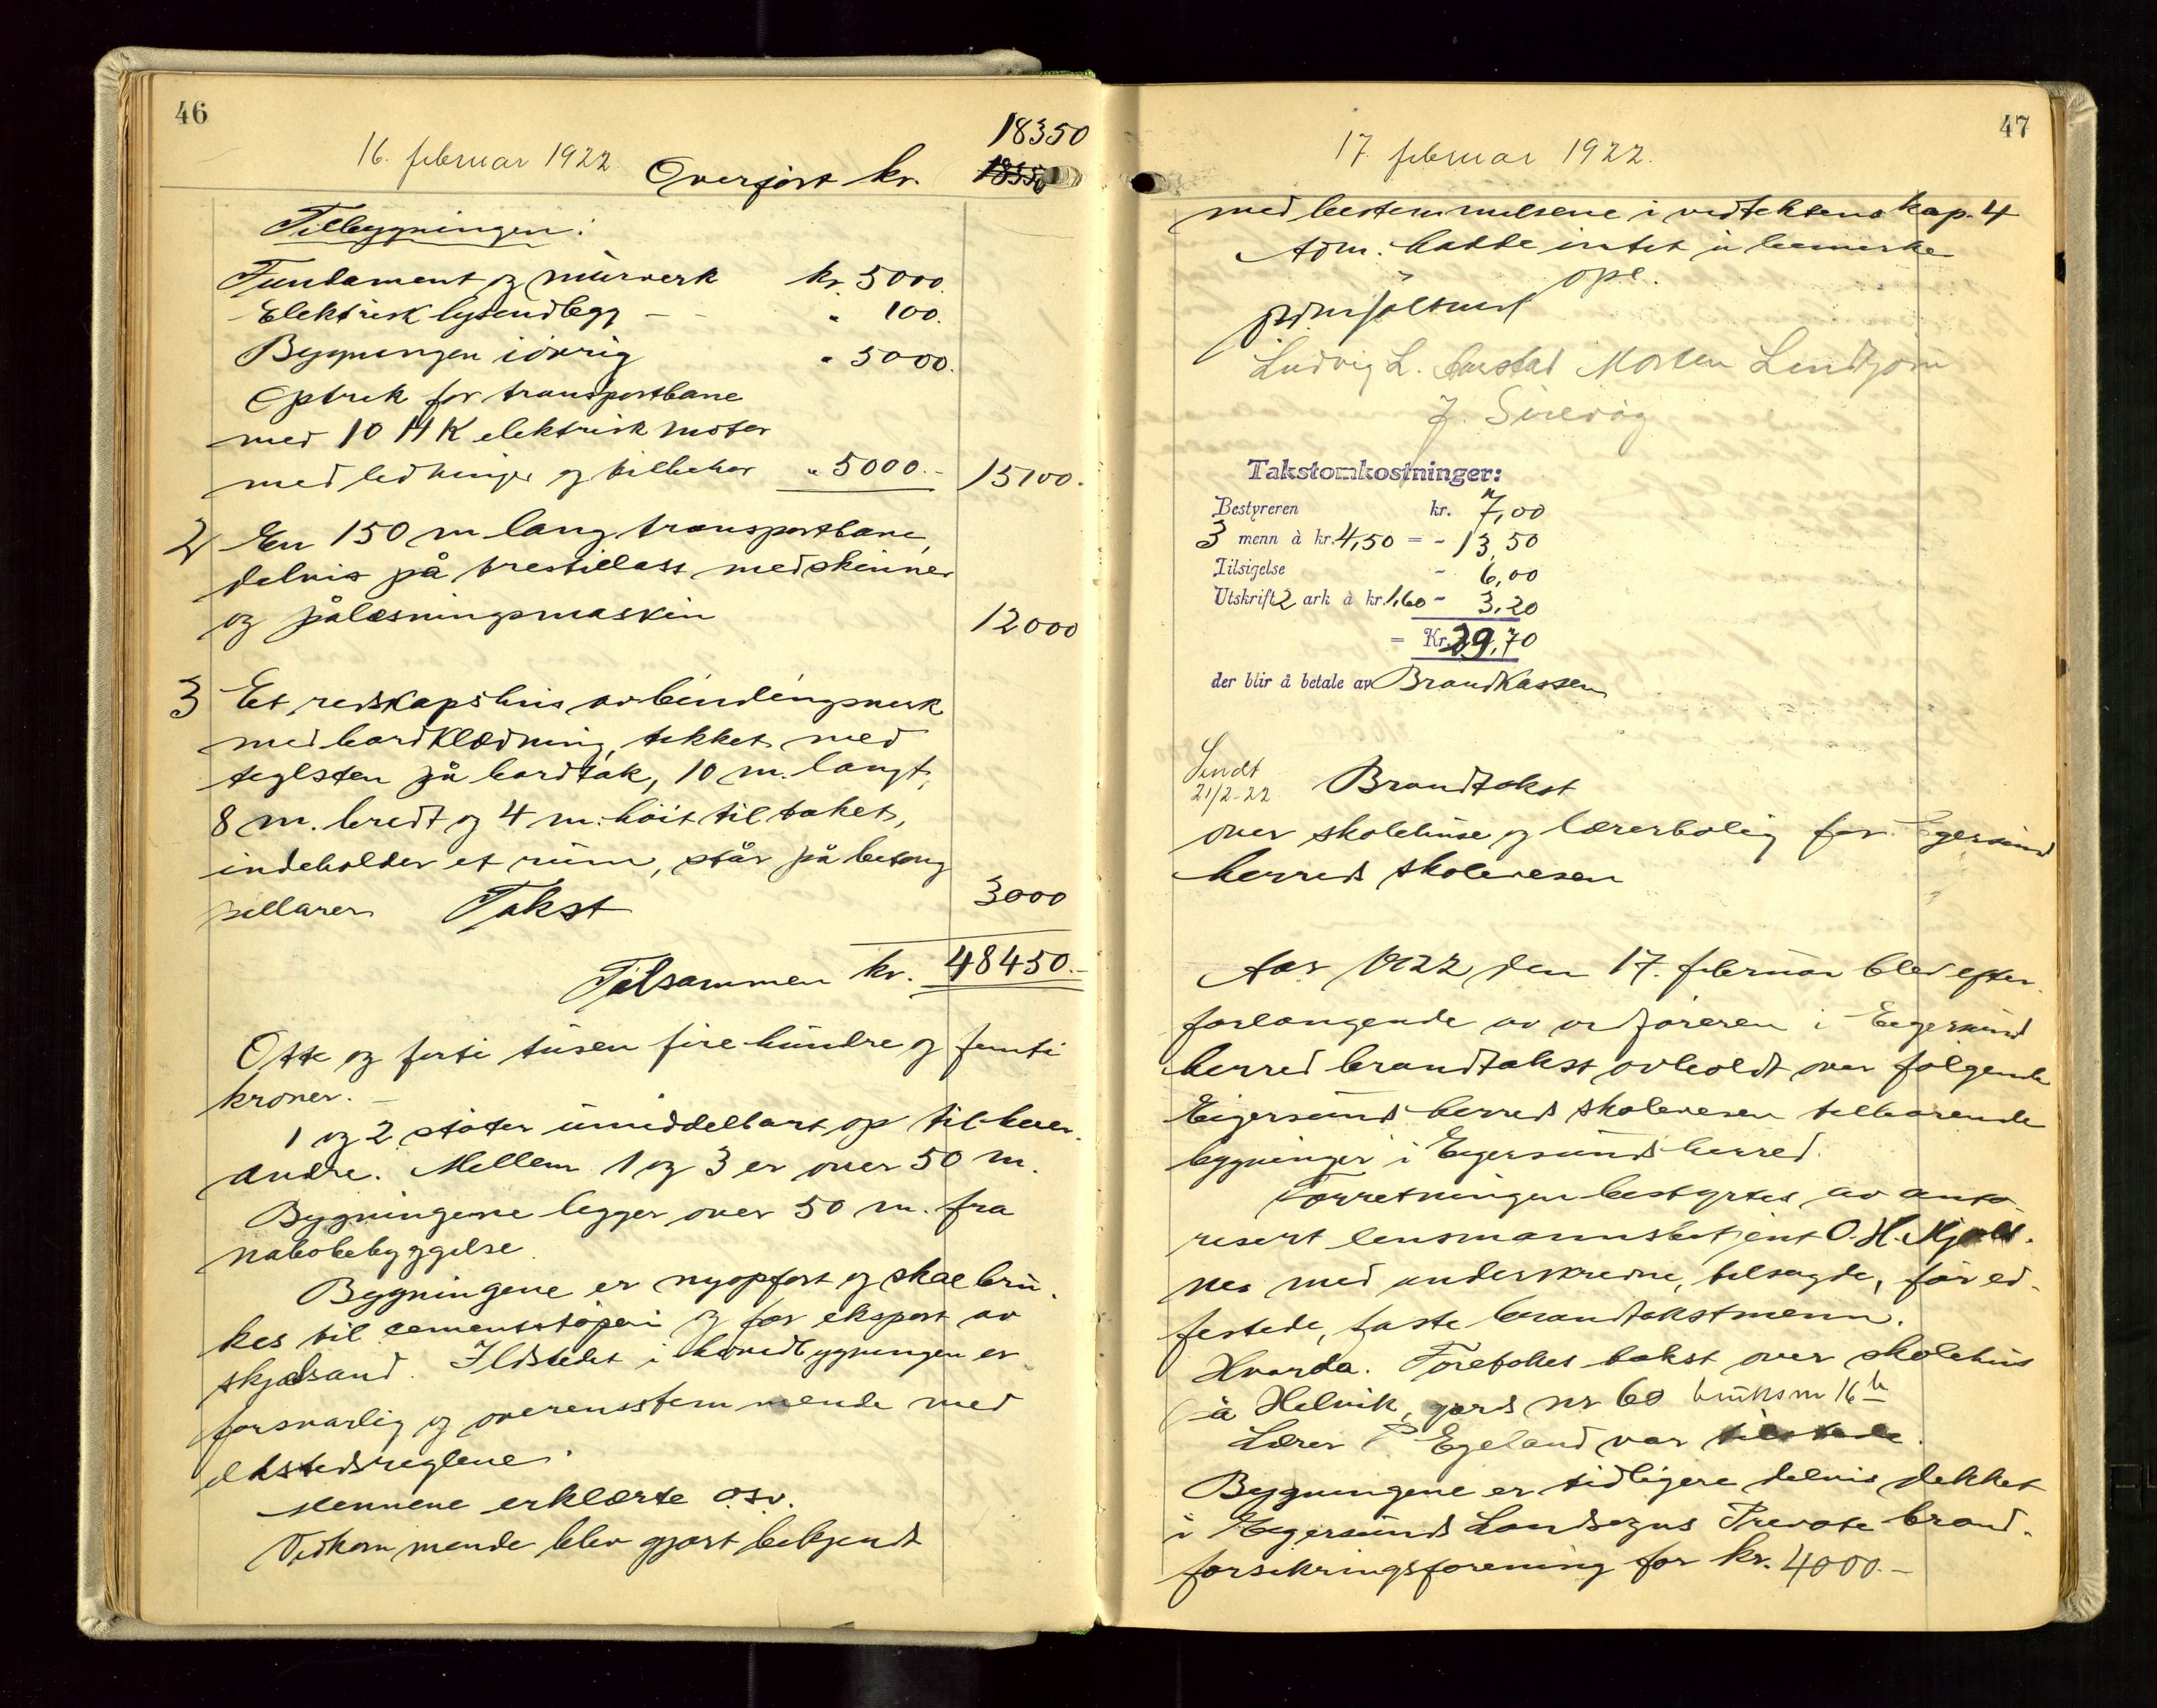 46
16. februar 1922
18350
Overført kr. 18350
Tilbygningen:
Fundament og murverk kr. 5000.
Elektrisk lysendlegg - - " 100.
Bygningen iøvrig " 5000.
Optrek for transportbane
med 10 HK elektrisk motor
med ledninger og tilbehør " 5000.- 15100.
2 En 150 m lang transportbane,
delvis på trestillass med skinner
og pålæsningsmaskin 12000
3 Et redskapshus av bindingsverk
med bordklædning, tekket med
teglsten på bordtak, 10 m. langt,
8 m. bredt og 4 m. høit til taket,
indeholder et rum, står på betong
pillarer. Takst 3000
Tilsammen kr. 48450.-
Otte og forti tusen fire hundre og femti
kroner. -
1 og 2 støter umiddelbart op til hver-
andre. Mellem 1 og 3 er over 50 m.
Bygningene ligger over 50 m. fra
nabobebyggelse.
Bygningene er nyopført og skal bru-
kes til cementstøperi og for eksport av
skjælsand. Ildstedet i hovedbygningen er
forsvarlig og overensstemmende med
ildstedsreglene.
Mennene erklærte osv.
Vedkommende blev gjort bekjendt
47
17. februar 1922.
med bestemmelsene i vedtektenes kap. 4
Adm. hadde intet å bemerke
opl.
Ludvig L. Aarstad Morten Lindtjørn
J. Sirevåg
Takstomkostninger:
Bestyreren kr. 7,00
3 menn à kr. 4,50 = - 13,50
Tilsigelse - 6,00
Utskrift 2 ark à kr. 1,60 - 3,20
= Kr. 29,70
der blir å betale av Brandkassen
Sendt
21/2-22 Brandtakst
over skolehuse og lærerbolig for Egersund
herreds skolevesen
Aar 1922 den 17. februar blev efter
forlangende av ordføreren i Eigersund
herred brandtakst avholdt over følgende
Eigersund herreds skolevesen tilhørende
bygninger i Eigersund herred.
Forretningen bestyrtes av auto-
risert lensmannsbetjent O. H. Kjølt-
nes med underskrevne, tilsagde, før ed-
festede, faste brandtakstmenn.
Hvorda. Foretokes takst over skolehus
på Helvik, gards nr 60 bruksnr 16 b
Lærer P Egeland var tilstede.
Bygningene er tidligere delvis dekket
i Eigersunds Landsogns Private brand-
forsikringsforening for kr. 4000.-